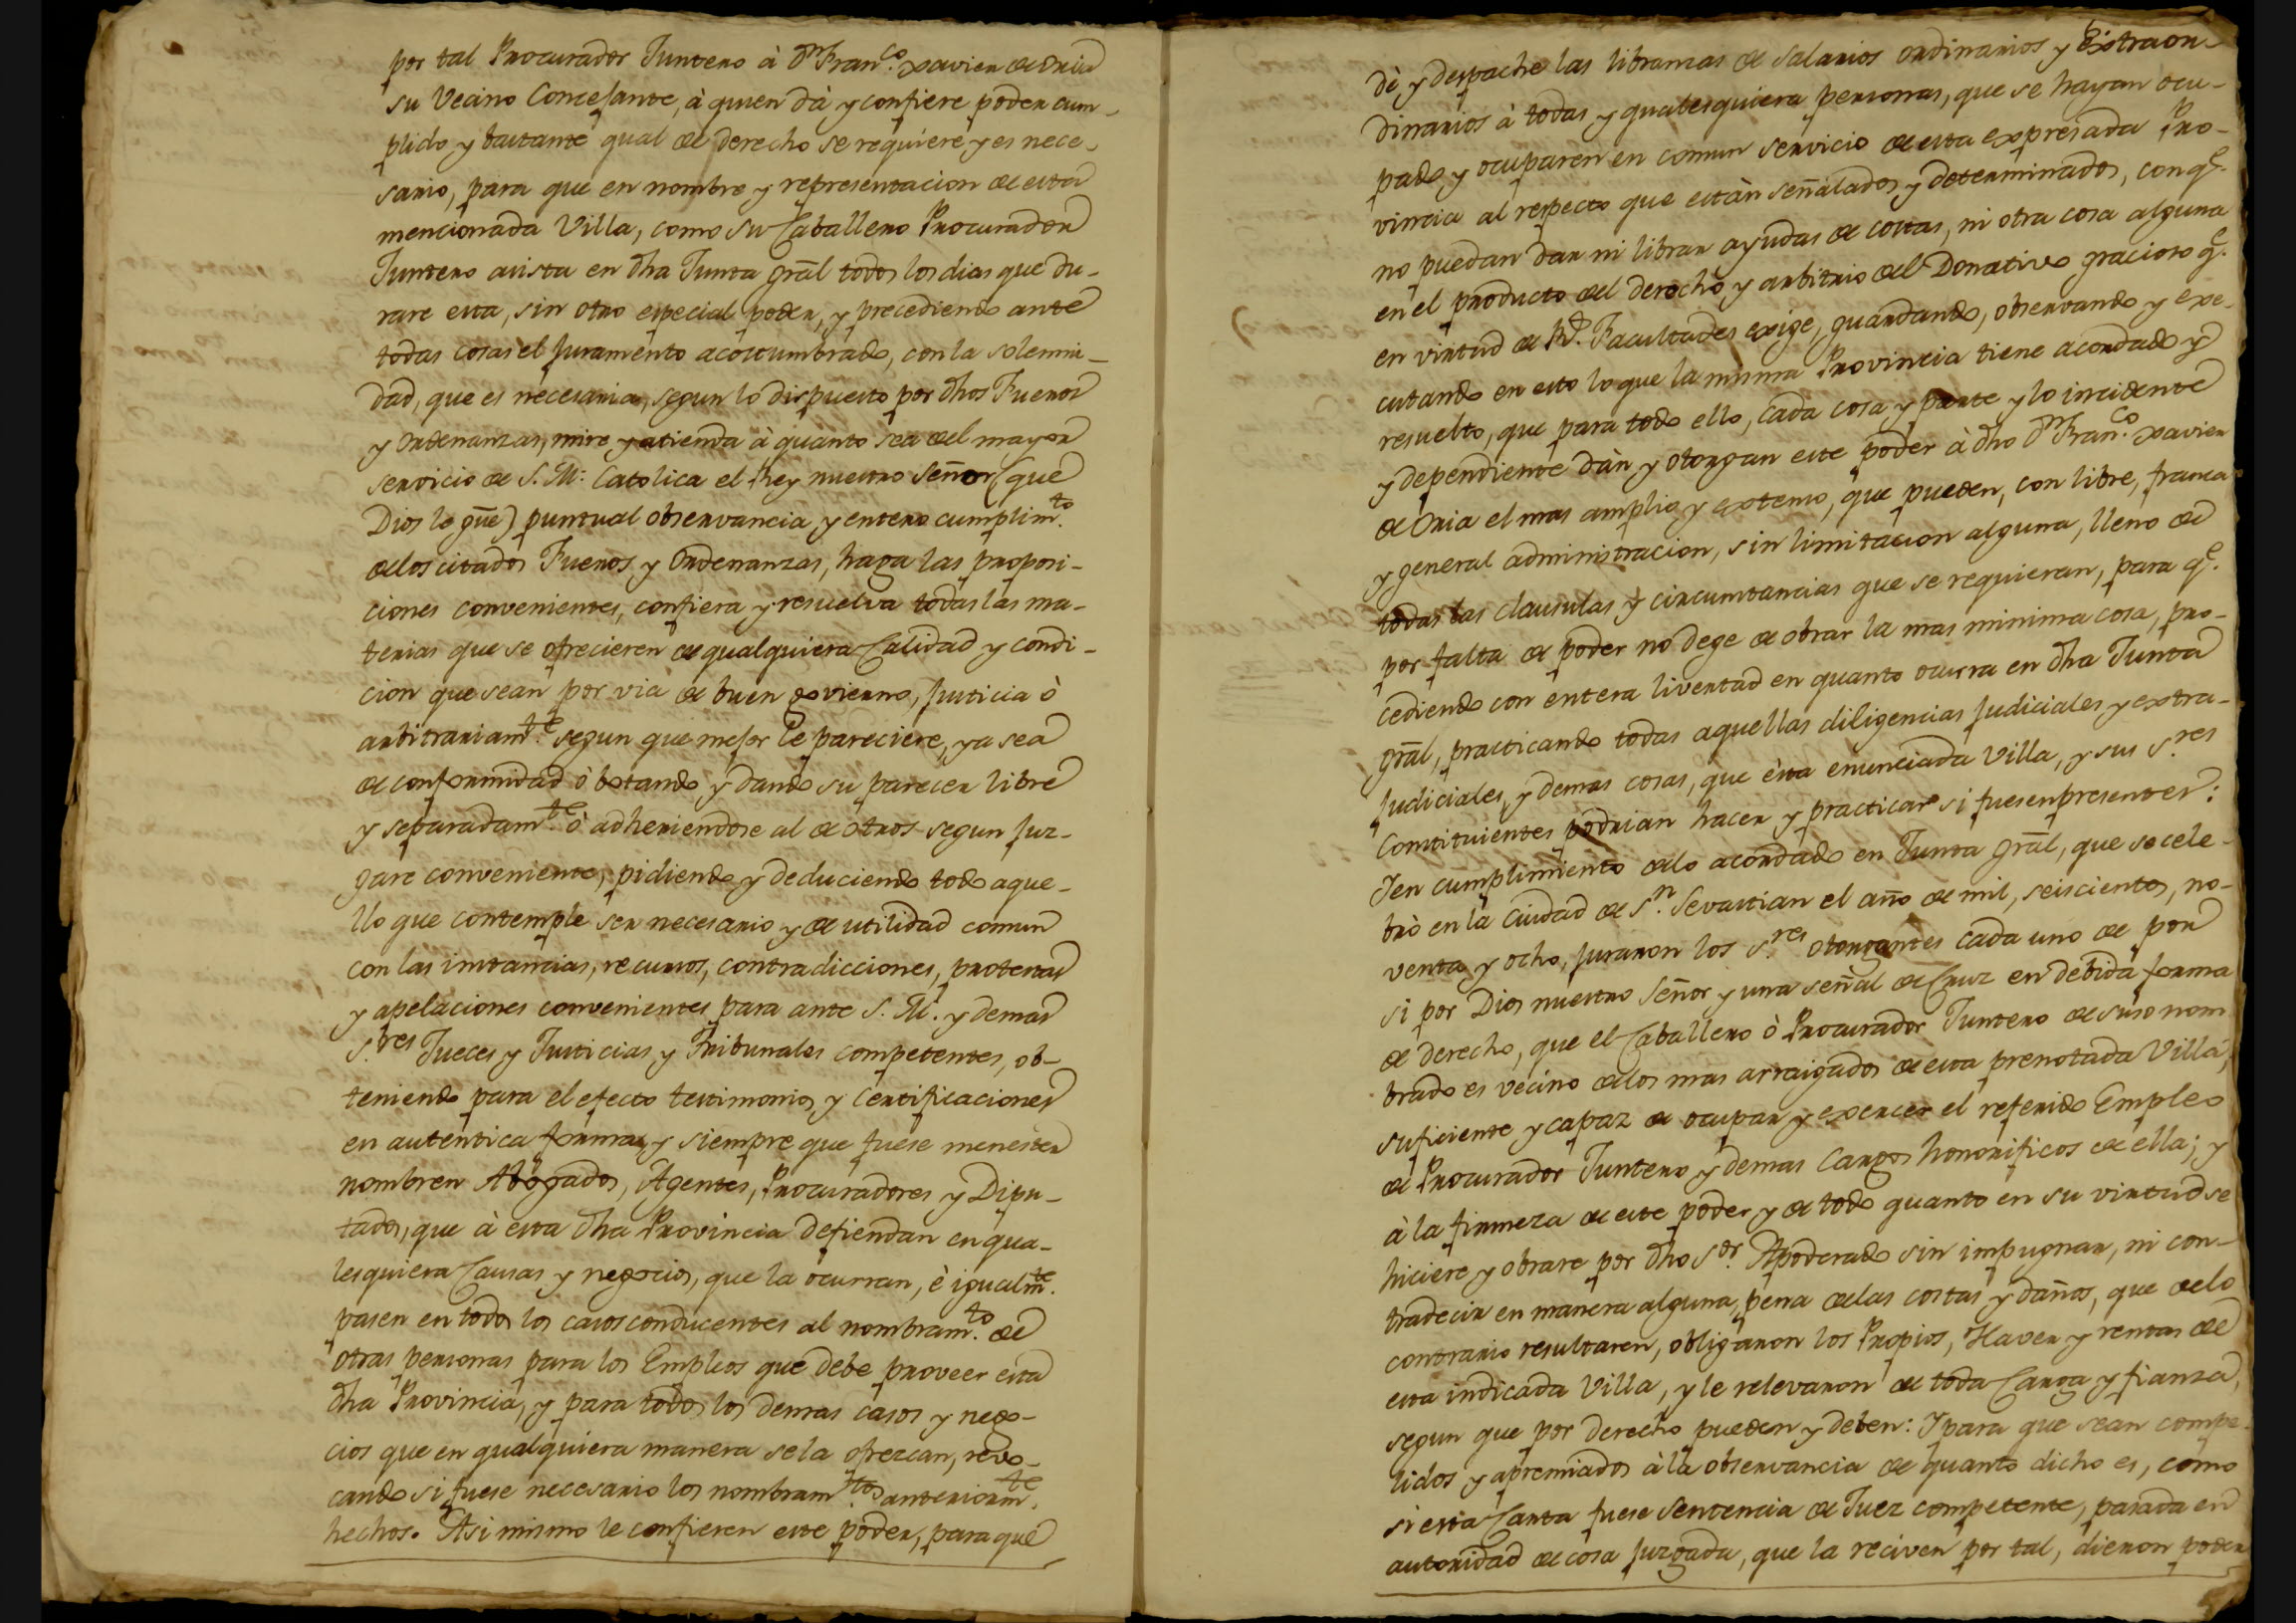 por tal Procurador Juntero à Dn Franco. Xavier de Oria
su Vecino Concejante, à quien dà y confiere poder cum-
plido y bastante qual de derecho se requiere y es nece-
sario, para que en nombre y representacion de esta
mencionada Villa, como su Caballero Procurador
Juntero asista en dha Junta gral todos los dias que du-
rare esta, sin otro especial poder, y precediendo ante
todas cosas el juramento acostumbrado, con la solemni-
dad, que es necesaria, segun lo dispuesto por dhos Fueros
y Ordenanzas, mire y atienda à quanto sea del mayor
servicio de S. M: Catolica el Rey nuestro Señor (que
Dios le gue) puntual observancia, y entero cumplimto.
de los citados Fueros y Ordenanzas, haga las proposi-
ciones convenientes, confiera y resuelva todas las ma-
terias que se ofrecieren de qualquiera Calidad y condi-
cion que sean por via de buen govierno, Justicia ò
arbitrariamte. segun que mejor le pareciere, ya sea
de conformidad ò botando y dando su parecer libre
y separadamte. ò adheriendose al de otros segun juz-
gare conveniente, pidiendo y deduciendo todo aque-
llo que contemple ser necesario y de utilidad comun
con las instancias, recursos, contradicciones, protestas
y apelaciones convenientes para ante S. M. y demas
S.res Jueces y Justicias, y Tribunales competentes, ob-
teniendo para el efecto testimonios y Certificaciones
en autentica forma, y siempre que fuese menester
nombren Abogados, Agentes, Procuradores y Dipu-
tados, que à esta dha Provincia defiendan en qua-
lesquiera Causas y negocios, que la ocurran, è igualmte.
pasen en todos los casos conducentes al nombramto. de
otras personas para los Empleos que debe proveer esta
dha Provincia, y para todos los demas casos y nego-
cios que en qualquiera manera se la ofrezcan, revo-
cando si fuese necesario los nombramtos. anteriormte.
hechos. Asi mismo le confieren este poder, para que
dè, y despache las libranzas de salarios ordinarios y Extraor-
dinarios à todas y qualesquiera personas, que se hayan ocu-
pado, y ocuparen en comun servicio de esta expresada Pro-
vincia al respecto que estàn señalados, y determinados, con qe.
no puedan dar ni librar ayudas de costas, ni otra cosa alguna
en el producto del derecho y arbitrio del Donativo gracioso qe.
en virtud de Rs. Facultades exige, guardando, observando y exe-
cutando en esto lo que la misma Provincia tiene acordado y
resuelto, que para todo ello, cada cosa y parte y lo incidente
y dependiente dàn y otorgan este poder à dho Dn Franco. Xavier
de Oria el mas amplio, y extenso, que pueden, con libre, franca
y general administracion, sin limitacion alguna, lleno de
todas las clausulas y circumstancias que se requieran, para qe.
por falta de poder no dege de obrar la mas minima cosa, pro-
cediendo con entera livertad en quanto ocurra en dha Junta
gral, practicando todas aquellas diligencias judiciales y extra-
judiciales, y demas cosas, que èsta enunciada Villa, y sus S.res
Constituientes podrian hacer y practicar si fuesen presentes:
Y en cumplimiento de lo acordado en Junta gral, que se cele-
brò en la Ciudad de Sn. Sevastian el año de mil, seiscientos, no-
venta y ocho, juraron los S.res otorgantes cada uno de por
si por Dios nuestro Señor y una señal de Cruz en debida forma
de derecho, que el Caballero ò Procurador Juntero de suso nom
brado es vecino de los mas arraigados de esta prenotada Villa,
suficiente y capaz de ocupar y exercer el referido Empleo
de Procurador Juntero y demas Cargos honorificos de ella; y
à la firmeza de este poder y de todo quanto en su virtud se
hiciere y obrare por dho Sor. Apoderado sin impugnar, ni con-
tradecir en manera alguna, pena de las costas y daños, que de lo
contrario resultaren, obligaron los Propios, Haver y rentas de
esta indicada Villa, y le relevaron de toda Carga y fianza,
segun que por derecho pueden y deben: Y para que sean compe-
lidos y apremiados à la observancia de quanto dicho es, como
si esta Carta fuese Sentencia de Juez competente, pasada en
autoridad de cosa juzgada, que la reciven por tal, dieron poder